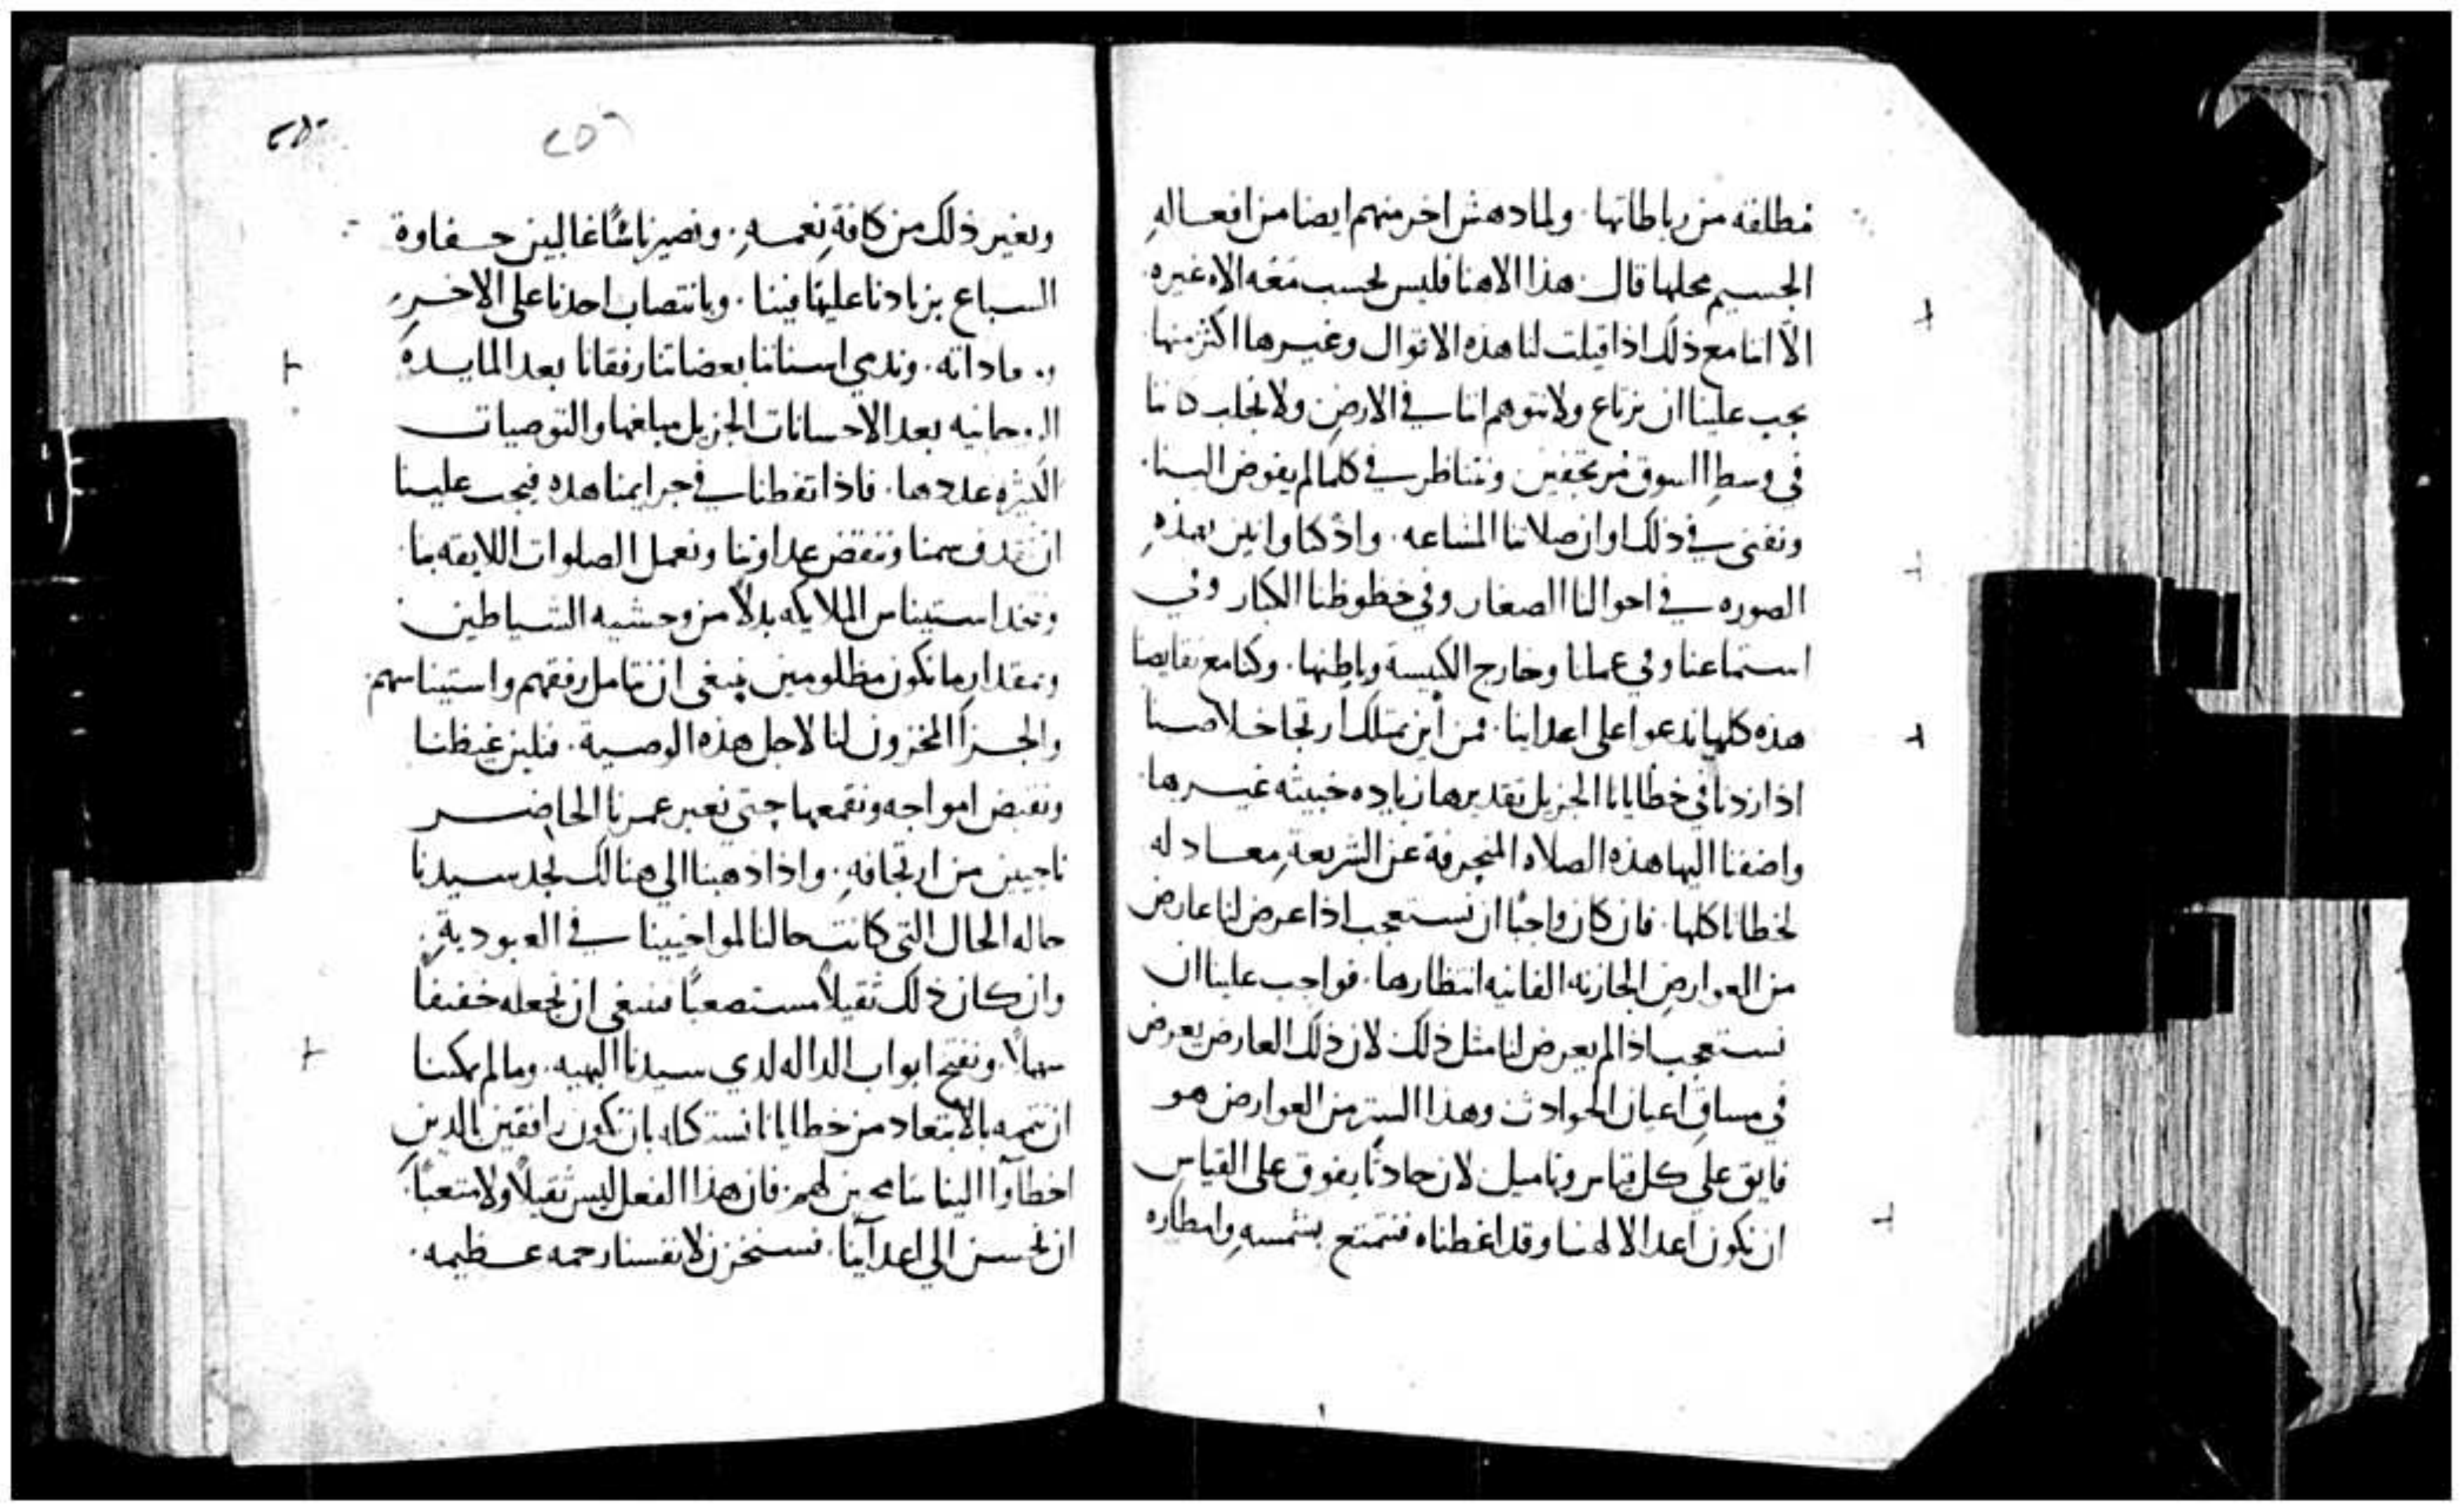 مطلقه من رباطاتها · ولما دهش اخر منهم ايضا من افعاله
الجسيم محلها قال · هذا الاهنا فليس يحسب معه الاه غيره ·
الّا اننا مع ذلك اذا قيلت لنا هذه الاقوال وغيرها اكثر منها ·
يجب علينا ان نرتاع ولا نتوهم اننا في الارض ولا نجلب ذاتنا
في وسط السوق مرتجفين ونتناظر في كلما لم يفوض الينا ·
ونفني في ذلك اوان صلاتنا المشاعه · واذ كنا وانين بهذه
الصوره في احوالنا الصغار وفي حظوظنا الكبار وفي
استماعنا وفي عملنا وخارج الكنيسة وباطنها · وكنا مع نقايصنا
هذه كلها ندعوا على اعداينا · فمن أين نمتلك ارتجا خلاصنا
اذا زدنا في خطايانا الجزيل تقديرها زياده خبيثه غيرها ·
واضفنا اليها هذه الصلاه المنحرفة عن الشريعة معادله
لخطايانا كلها · فان كان واجبًا ان نستعجب اذا عرض لنا عارض
من العوارض الفانيه انتظارها · فواجب علينا ان
نستعجب اذا لم يعرض لنا مثل ذلك لان ذلك العارض يعرض
في مساق اعيان الحوادث وهذا من العوارض هو
فايق على كل قياس وتاميل لان حادثًا يفوق على القياس
ان نكون اعدا لالهنا وقد اغظناه فنتمتع بشمسه وامطاره
٢٥٦
وبغير ذلك من كافة نعمه · ونصير ناسًا غالبين جفاوة
السباع بزيادنا علينا فينا · وبانتصاب احدنا على الاخر
وندمي اسناننا بعضاتنا رفقانا بعد المايده
بعد الاحسانات الجزيل مبلغها والتوصيات
الكثيره عددها · فاذا تفطنا في جرايمنا هذه فيجب علينا
ان نقذف سمنا وننقض عداوتنا ونعمل الصلوات اللايقه بنا ·
ونتخذ استيناس الملايكه بدلًا من وحشيه الشياطين :
وبمقدار ما نكون مظلومين ينبغي ان نتامل رفقهم واستيناسهم ·
والجزآ المخزون لنا لاجل هذه الوصية · فنلين غيظنا
ونقبض امواجه ونقمعها حتى نعبر عمرنا الحاضر
ناجيين من ارتجافه · واذا ذهبنا الى هنالك نجد سيدنا
حاله الحال التي كانت حالنا لمواخيينا في العبودية ·
وان كان ذلك ثقيلًا مستصعبًا فينبغي ان نجعله خفيفًا
سهلًا · ونفتح ابواب الداله لدي سيدنا البهيه · وما لم يمكننا
ان نتممه بالابتعاد من خطايانا نستدركه بان نكون رافقين بالذين
اخطاوا الينا مسامحين لهم · فان هذا الفعل ليس ثقيلًا ولا متعبًا ·
ان نحسن الي اعدآينا · فسنخزن لانفسنا رحمه عظيمه ·